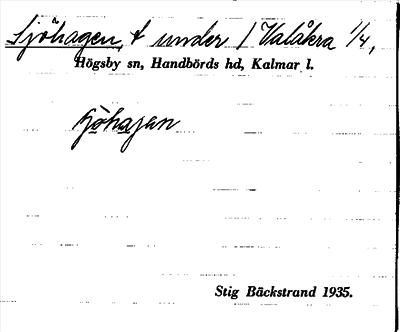 Sjöhagen, t under 1 Valåkra 1/4,
Högsby sn, Handbörds hd, Kalmar l.
Stig Bäckstrand 1935.